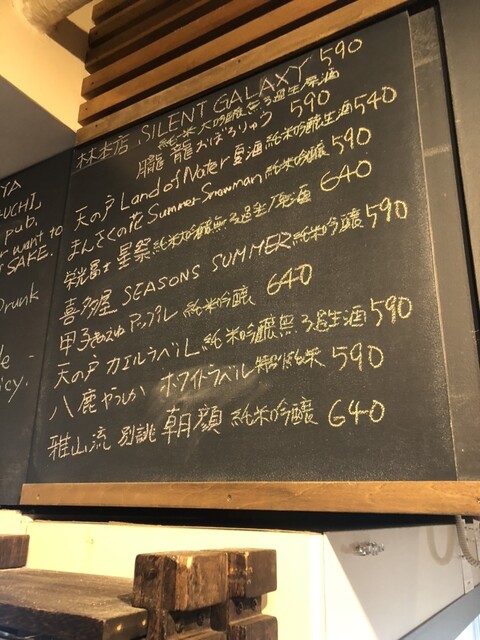 林本店 SILENT GALAXY 590
純米大吟醸無ろ過生原酒
朧龍 おぼろりゅう 590
天の戸 Land of Water 夏酒 純米吟醸生酒 540
まんさくの花 Summer Snowman 純米吟醸 590
栄光冨士 星祭 純米吟醸無ろ過生原酒 640
喜多屋 SEASONS SUMMER 純米吟醸 590
甲子きのえね アップル 純米吟醸 640
天の戸 カエルラベル 純米吟醸無ろ過生酒 590
八鹿やつしか ホワイトラベル 特別純米 590
雅山流 別誂 朝顔 純米吟醸 640
YA
UCHI,
pub.
want to
SAKE.
Drunk